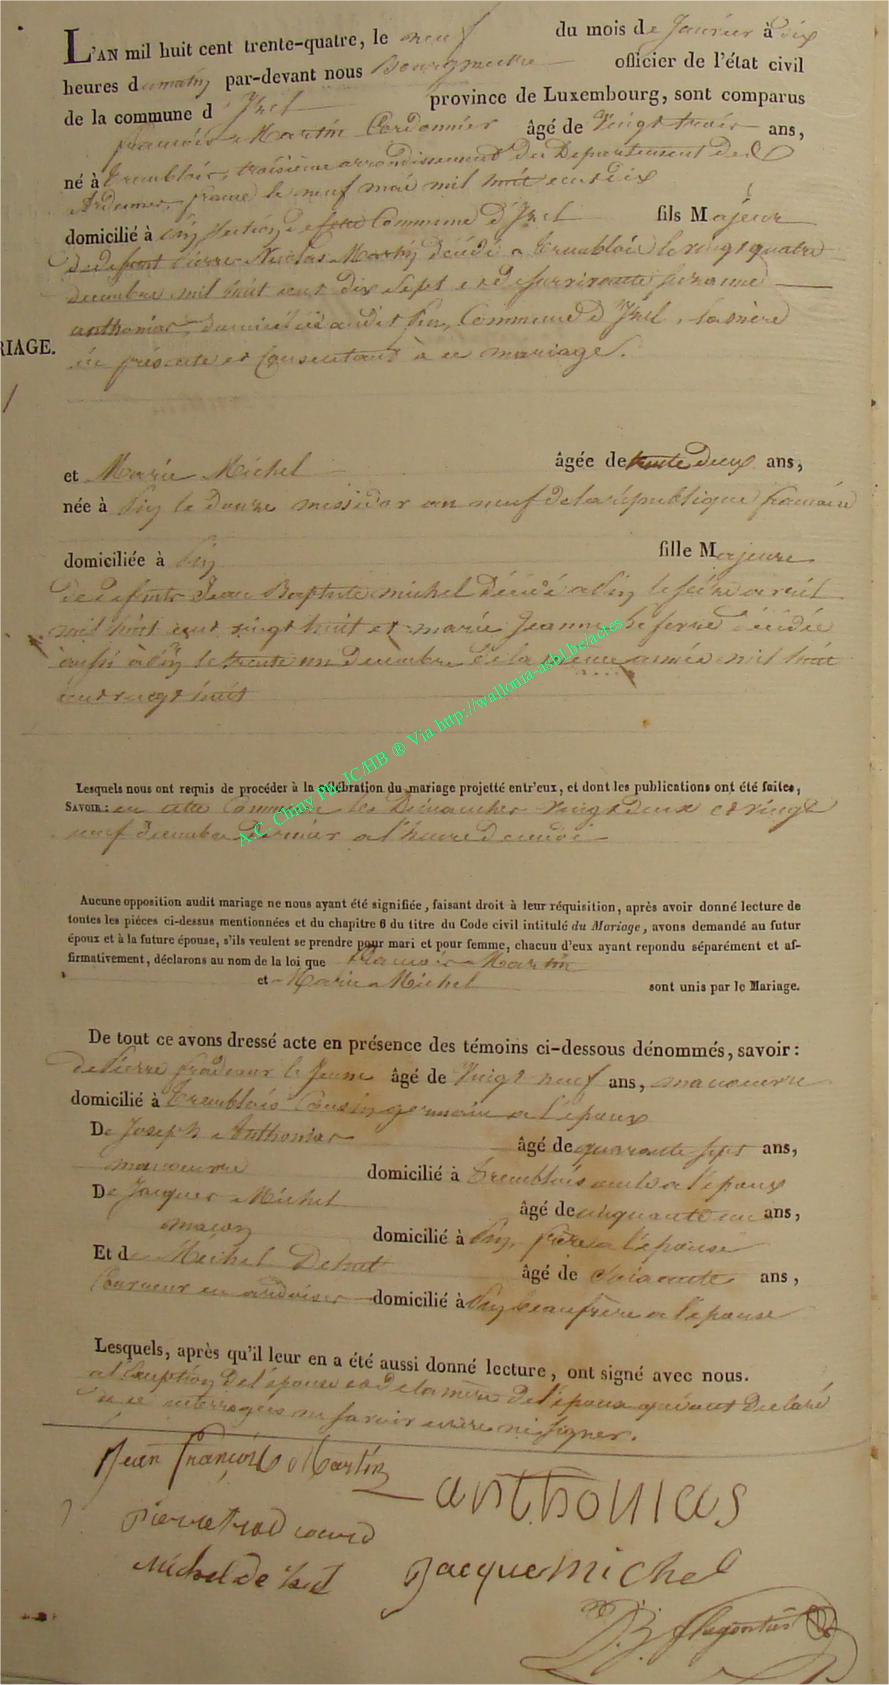 L'AN mil huit cent trente-quatre, le neuf du mois de Janvier à dix
heures du matin par-devant nous Bourgmestre officier de l'état civil
de la commune d'Izel province de Luxembourg, sont comparus
françois Martin Cordonnier âgé de Vingt trois ans,
né à tremblois, troisième arrondissement du Departement des
Ardennes, france le neuf mai mil huit cent dix
domicilié à Pin section de cette Commune d'Izel fils Majeur
de defunt Pierre Nicolas Martin décédé a tremblois le vingt quatre
decembre mil huit cent dix sept et de
anthonias domiciliée audit Pin, Commune d'Izel, la mère
ici présente et Consentant à ce mariage.
RIAGE.
et Marie Michel âgée de trente deux ans,
née à Pin le douze messidor an neuf de la république francaise
domiciliée à Pin fille Majeure
de defunts Jean Baptiste michel décédé a Pin le seize avril
mil huit cent vingt huit et marie Jeanne décédée
aussi à Pin le trente un decembre de la même année mil huit
cent vingt huit
Lesquels nous ont requis de procéder à la célébration du mariage projetté entr'eux, et dont les publications ont été faites,
SAVOIR: en cette Commune les Dimanches vingt deux et vingt
neuf decembre dernier a l'heure de midi
Aucune opposition audit mariage ne nous ayant été signifiée, faisant droit à leur réquisition, après avoir donné lecture de
toutes les piéces ci-dessus mentionnées et du chapitre 6 du titre du Code civil intitulé du Mariage, avons demandé au futur
époux et à la future épouse, s'ils veulent se prendre pour mari et pour femme, chacun d'eux ayant repondu séparément et af-
firmativement, déclarons au nom de la loi que François Martin
et Marie Michel sont unis par le Mariage.
De tout ce avons dressé acte en présence des témoins ci-dessous dénommés, savoir:
de Pierre le Jeune âgé de Vingt neuf ans, manoeuvre
domicilié à tremblois Cousin germain a l'époux
De Joseph Anthonias âgé de quarante sept ans,
manoeuvre domicilié à tremblois oncle a l'époux
De Jacques Michel âgé de cinquante un ans,
maçon domicilié à Pin, frère a l'épouse
Et de Michel Dehut âgé de soixante ans,
Couvreur en ardoises domicilié à Pin beaufrère a l'épouse
Lesquels, après qu'il leur en a été aussi donné lecture, ont signé avec nous.
a l'exception de l'épouse et de la mère de l'époux qui ont Declaré
de ce interrogées ne savoir ecrire ni signer.
Jean françois Martin
anthonias
Pierre
Michel de hut
Jacque Michel
A.C. Chiny Ph. JC/HB ® Via http://wallonia-asbl.be/actes